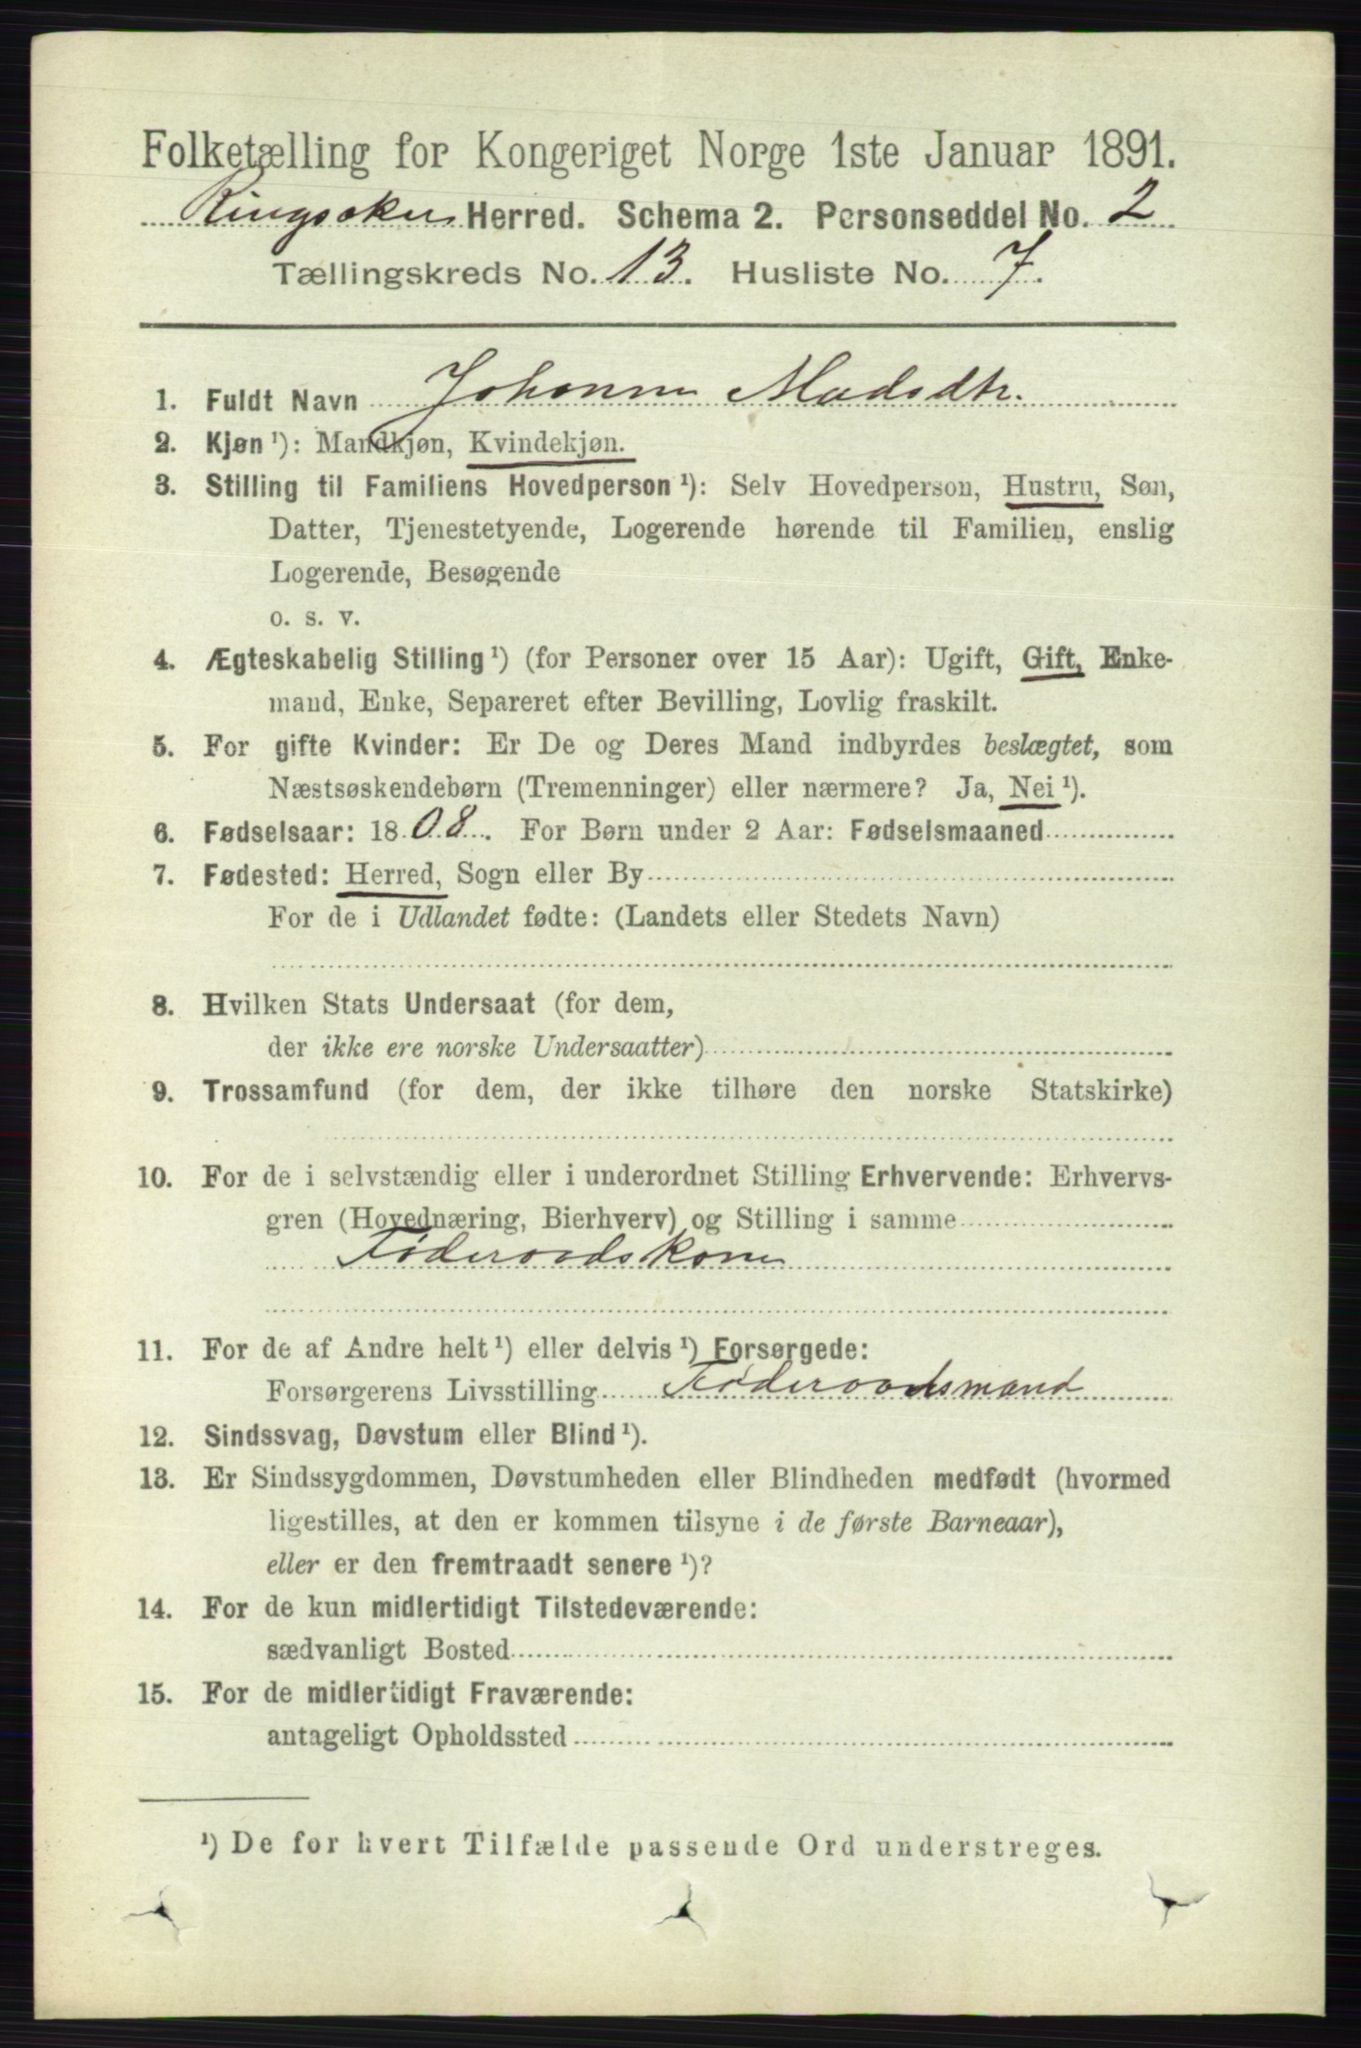 Folketælling for Kongeriget Norge 1ste Januar 1891.
Ringsaker Herred. Schema 2. Personseddel No. 2
Tællingskreds No. 13. Husliste No. 7.
1. Fuldt Navn Johanne Madsdtr.
2. Kjøn ¹): Mandkjøn, Kvindekjøn.
3. Stilling til Familiens Hovedperson ¹): Selv Hovedperson, Hustru, Søn,
Datter, Tjenestetyende, Logerende hørende til Familien, enslig
Logerende, Besøgende
o. s. v.
4. Ægteskabelig Stilling ¹) (for Personer over 15 Aar): Ugift, Gift, Enke-
mand, Enke, Separeret efter Bevilling, Lovlig fraskilt.
5. For gifte Kvinder: Er De og Deres Mand indbyrdes beslægtet, som
Næstsøskendebørn (Tremenninger) eller nærmere? Ja, Nei ¹).
6. Fødselsaar: 1808. For Børn under 2 Aar: Fødselsmaaned
7. Fødested: Herred, Sogn eller By
For de i Udlandet fødte: (Landets eller Stedets Navn)
8. Hvilken Stats Undersaat (for dem,
der ikke ere norske Undersaatter)
9. Trossamfund (for dem, der ikke tilhøre den norske Statskirke)
10. For de i selvstændig eller i underordnet Stilling Erhvervende: Erhvervs-
gren (Hovednæring, Bierhverv) og Stilling i samme
Føderaadskone
11. For de af Andre helt ¹) eller delvis ¹) Forsørgede:
Forsørgerens Livsstilling Føderaadsmand
12. Sindssvag, Døvstum eller Blind ¹).
13. Er Sindssygdommen, Døvstumheden eller Blindheden medfødt (hvormed
ligestilles, at den er kommen tilsyne i de første Barneaar),
eller er den fremtraadt senere ¹)?
14. For de kun midlertidigt Tilstedeværende:
sædvanligt Bosted
15. For de midlertidigt Fraværende:
antageligt Opholdssted
¹) De for hvert Tilfælde passende Ord understreges.